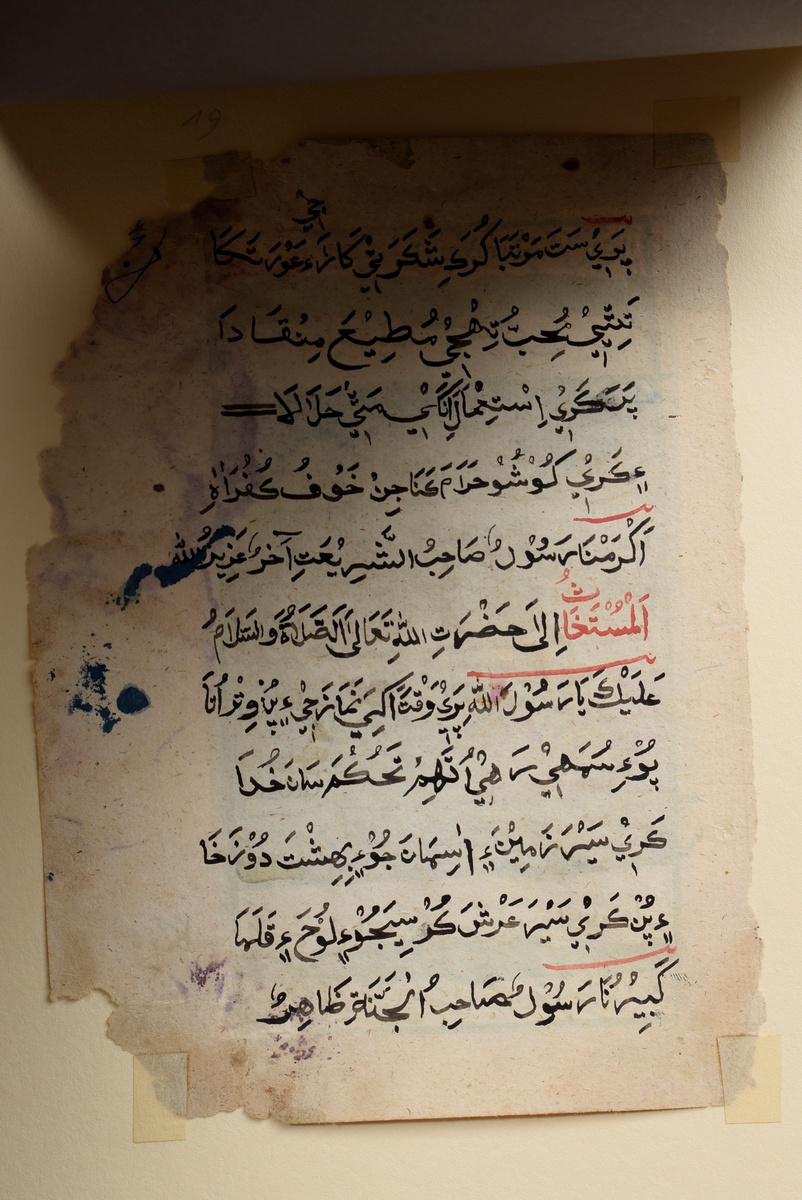 19
جي
پوءِ سَتَ مَرْتَبَا كُرَكِ شَكَرَ تِيْ كَارَاءِ عَوْرَتَكَا
تِنِّيْ مُحِبُّ تِهْجِيْ مُطِيْعَ مِنْقَادَا
پَرَكَرِيْ اِسْتِعْمَالَ اَنَّكَيْ مَتِيْ حَلَالَا
ءِ كَرِيْ كُوْشُوْ حَرَامَ كَنَا جِنْ خَوْفُ كُفْرَاهِ
اَكْرَمْنَا رَسُوْلٌ صَاحِبُ الشَّرِيْعَتِ آخِرٌ عَزِيْزُ اللّٰه
اَلْمُسْتَغَاثُ اِلىٰ حَضْرَتِ اللّٰهِ تَعَالىٰ اَلصَّلَاةُ وَالسَّلَامُ
عَلَيْكَ يَا رَسُوْلَ اللّٰهِ پَرِيْ وَقْتَا اَكِيْ نَمَازَ جِيْ ءِ پُنْ وِتْرَاُنَا
پُوْءِ سُمَهِيْ رَهِيْ اُنَّهِيْ تَحُكْمَ سَانَ خُدَا
كَرِيْ سَيْرَ زَمِيْنَ ءِ اٰسِمَانَ جُوْءِ بِهِشْتَ دُوْزَخَا
ءِ پُنْ كَرِيْ سَيْرَ عَرْشَ كُرْسِيَ جُوْءِ لَوْحَ ءِ قَلَمَا
كَبِيْرُنَا رَسُوْلٌ صَاحِبُ الْجَنَّةِ ظَاهِرٌ